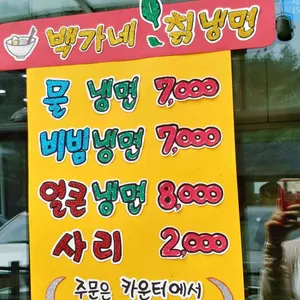 백가네 칡냉면
물 냉면 7,000
비빔냉면 7,000
얼큰냉면 8,000
사리 2,000
주문은 카운터에서